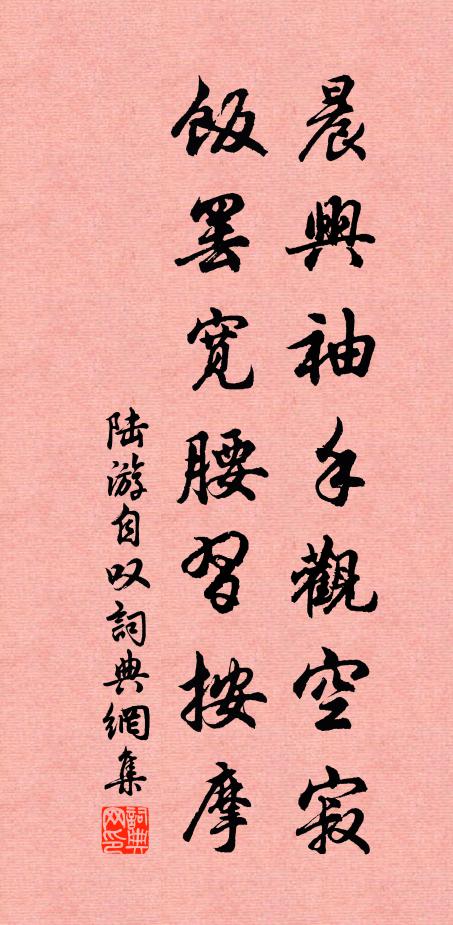 晨興袖手觀空寂
飯罷寬腰習按摩
陆游自叹詞典網集
詞典网印